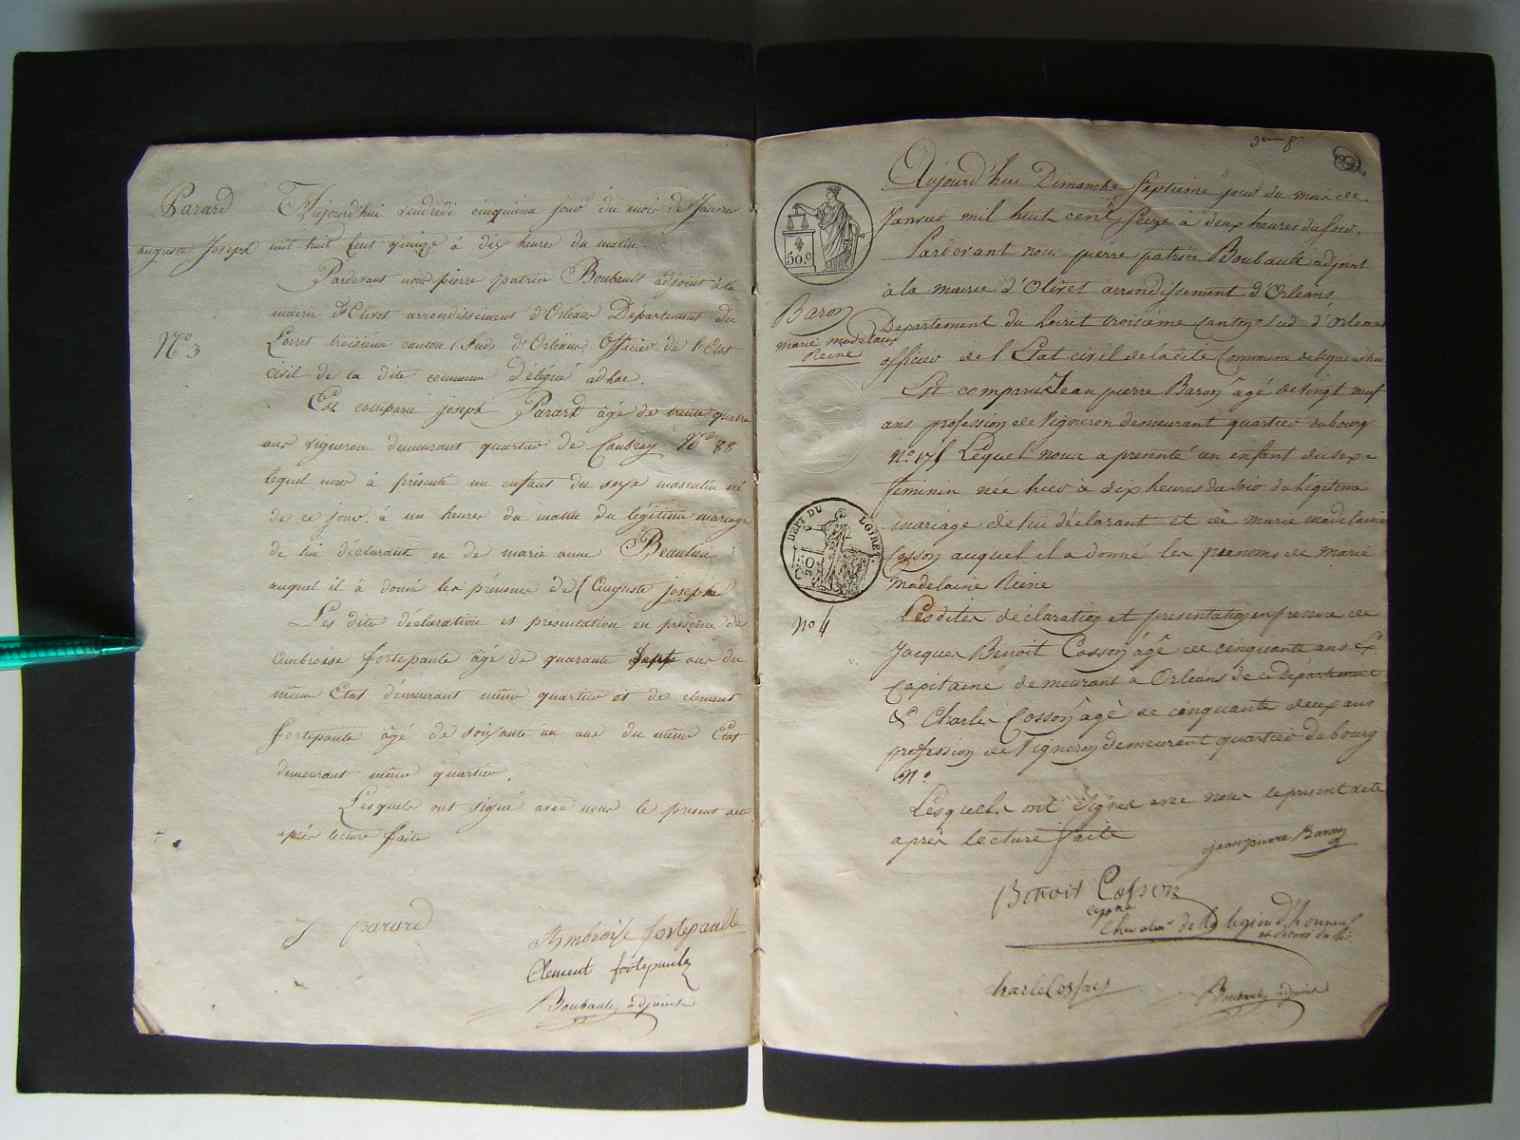 Parard
auguste Joseph
N° 3
Aujourd'hui vendredi cinquième jour du mois de Janvier
mil huit Cent quinze à dix heures du matin.
Pardevant nous pierre patrice Boubault adjoint à la
mairie d'Olivet arrondissement d'Orléans Département du
Loiret troisieme canton Sud d'Orléans Officier de l'Etat
civil de la dite commune Délégué adhoc.
Est comparu joseph Parard âgé de trente quatre
ans vigneron demeurant quartier de Caubray N° 88
lequel nous à présenté un enfant du sexe masculin né
de ce jour à un heure du matin du légitime mariage
de lui déclarant et de marie anne Beaulieu
auquel il à donné les prénoms de Auguste joseph
Les dite déclaration et présentation en présence de
Ambroise fortepaulle âgé de quarante Sept ans du
même Etat demeurant même quartier et de clement
fortepaulle âgé de soixante un ans du même Etat
demeurant même quartier.
Lesquels ont signé avec nous le présent acte
après lecture faite
J parard
Ambroise fortepaulle
Clement fortepaulle
Boubault adjoint
50.c
Baron
marie madelaine
Reine
DEPT DU LOIRET.
N° 4
Aujourd'hui Dimanche Septieme jour du mois de
Janvier mil huit cent seize à deux heures du soir.
Pardevant nous pierre patrice Boubault adjoint
à la mairie d'Olivet arrondissement d'Orléans,
Departement du Loiret troisième Canton Sud d'Orleans
officier de l'Etat civil de la dite Commune
Est comparu Jean pierre Baron agé de vingt neuf
ans profession de Vigneron demeurant quartier du bourg
N° 175 Lequel nous a presenté un enfant du sexe
feminin née hier à dix heures du soir du légitime
mariage de lui déclarant et de marie madelaine
Cosson auquel il a donné les prenoms de marie
madelaine Reine
Les dites déclaration et presentation en presence de
Jacques Benoit Cosson âgé de cinquante ans Ex
Capitaine demeurant a Orleans de ce département
& Charles Cosson agé de cinquante deux ans
profession de Vigneron demeurent quartier du bourg
N°
Lesquels ont signés avec nous le present acte
après lecture faite
jean pierre Baron
Benoit Cosson
Chevalier de la legion d'honneur
charle Cosson
Boubault adjoint